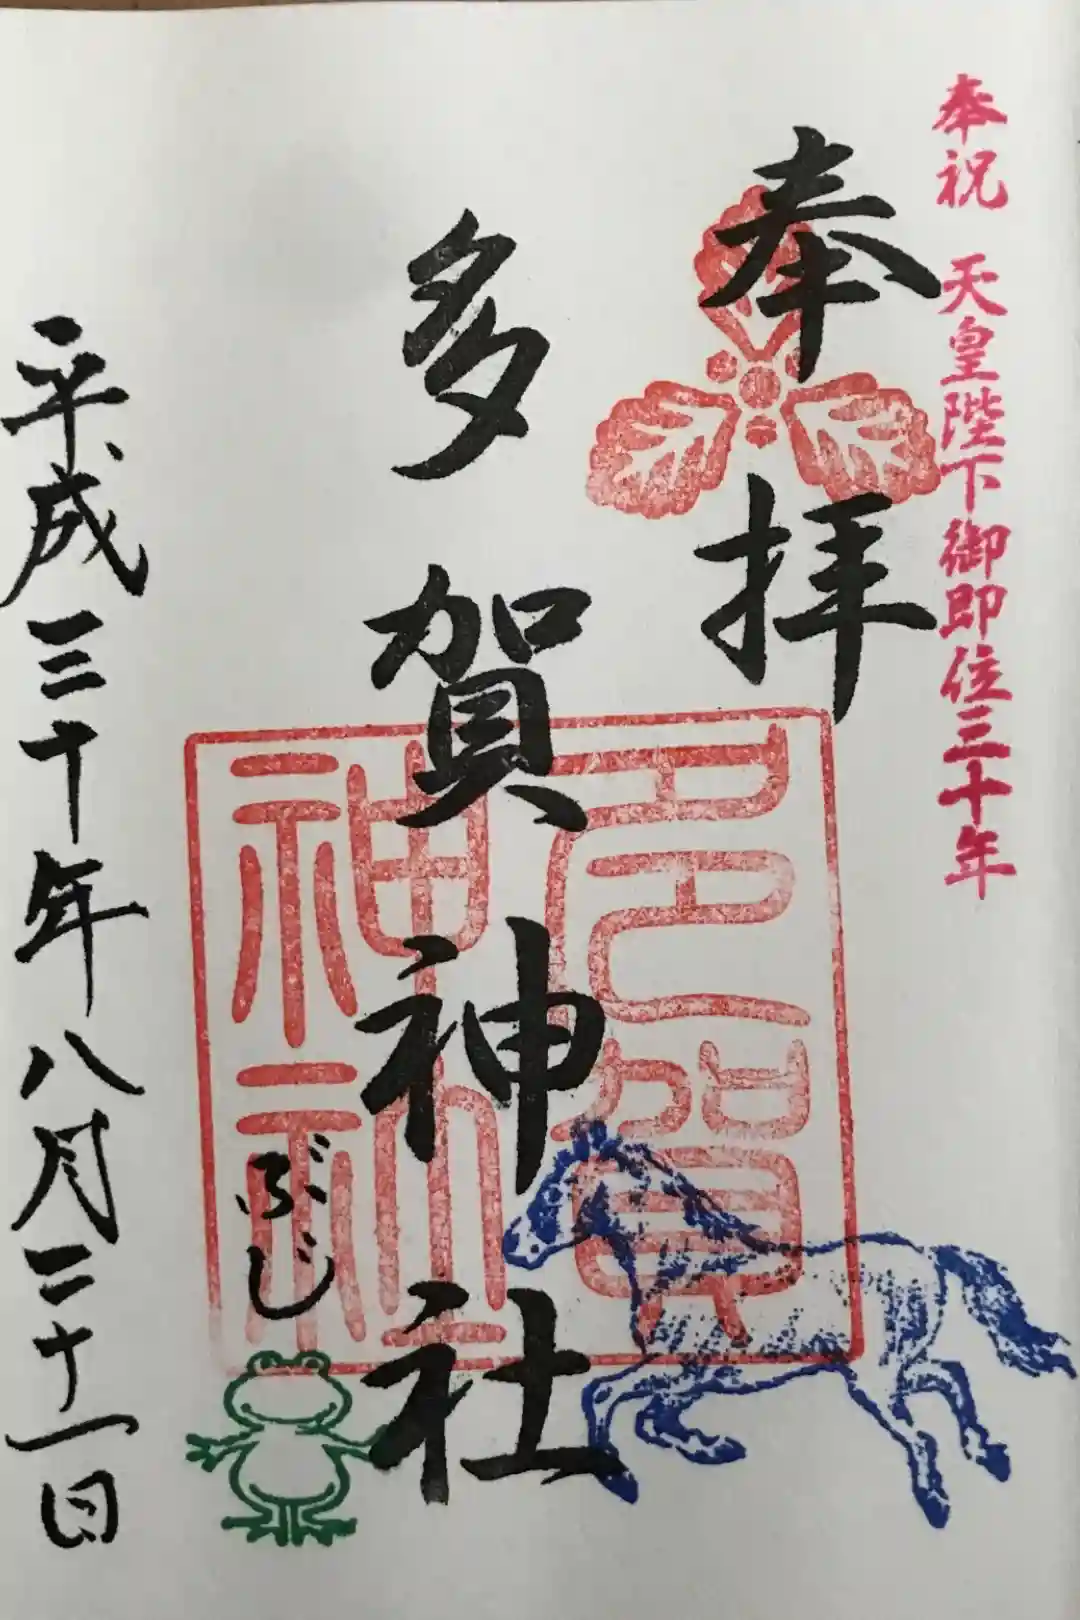 奉祝 天皇陛下御即位三十年
奉拝
多賀神社
多賀
神社
ぶじ
平成三十年八月二十一日